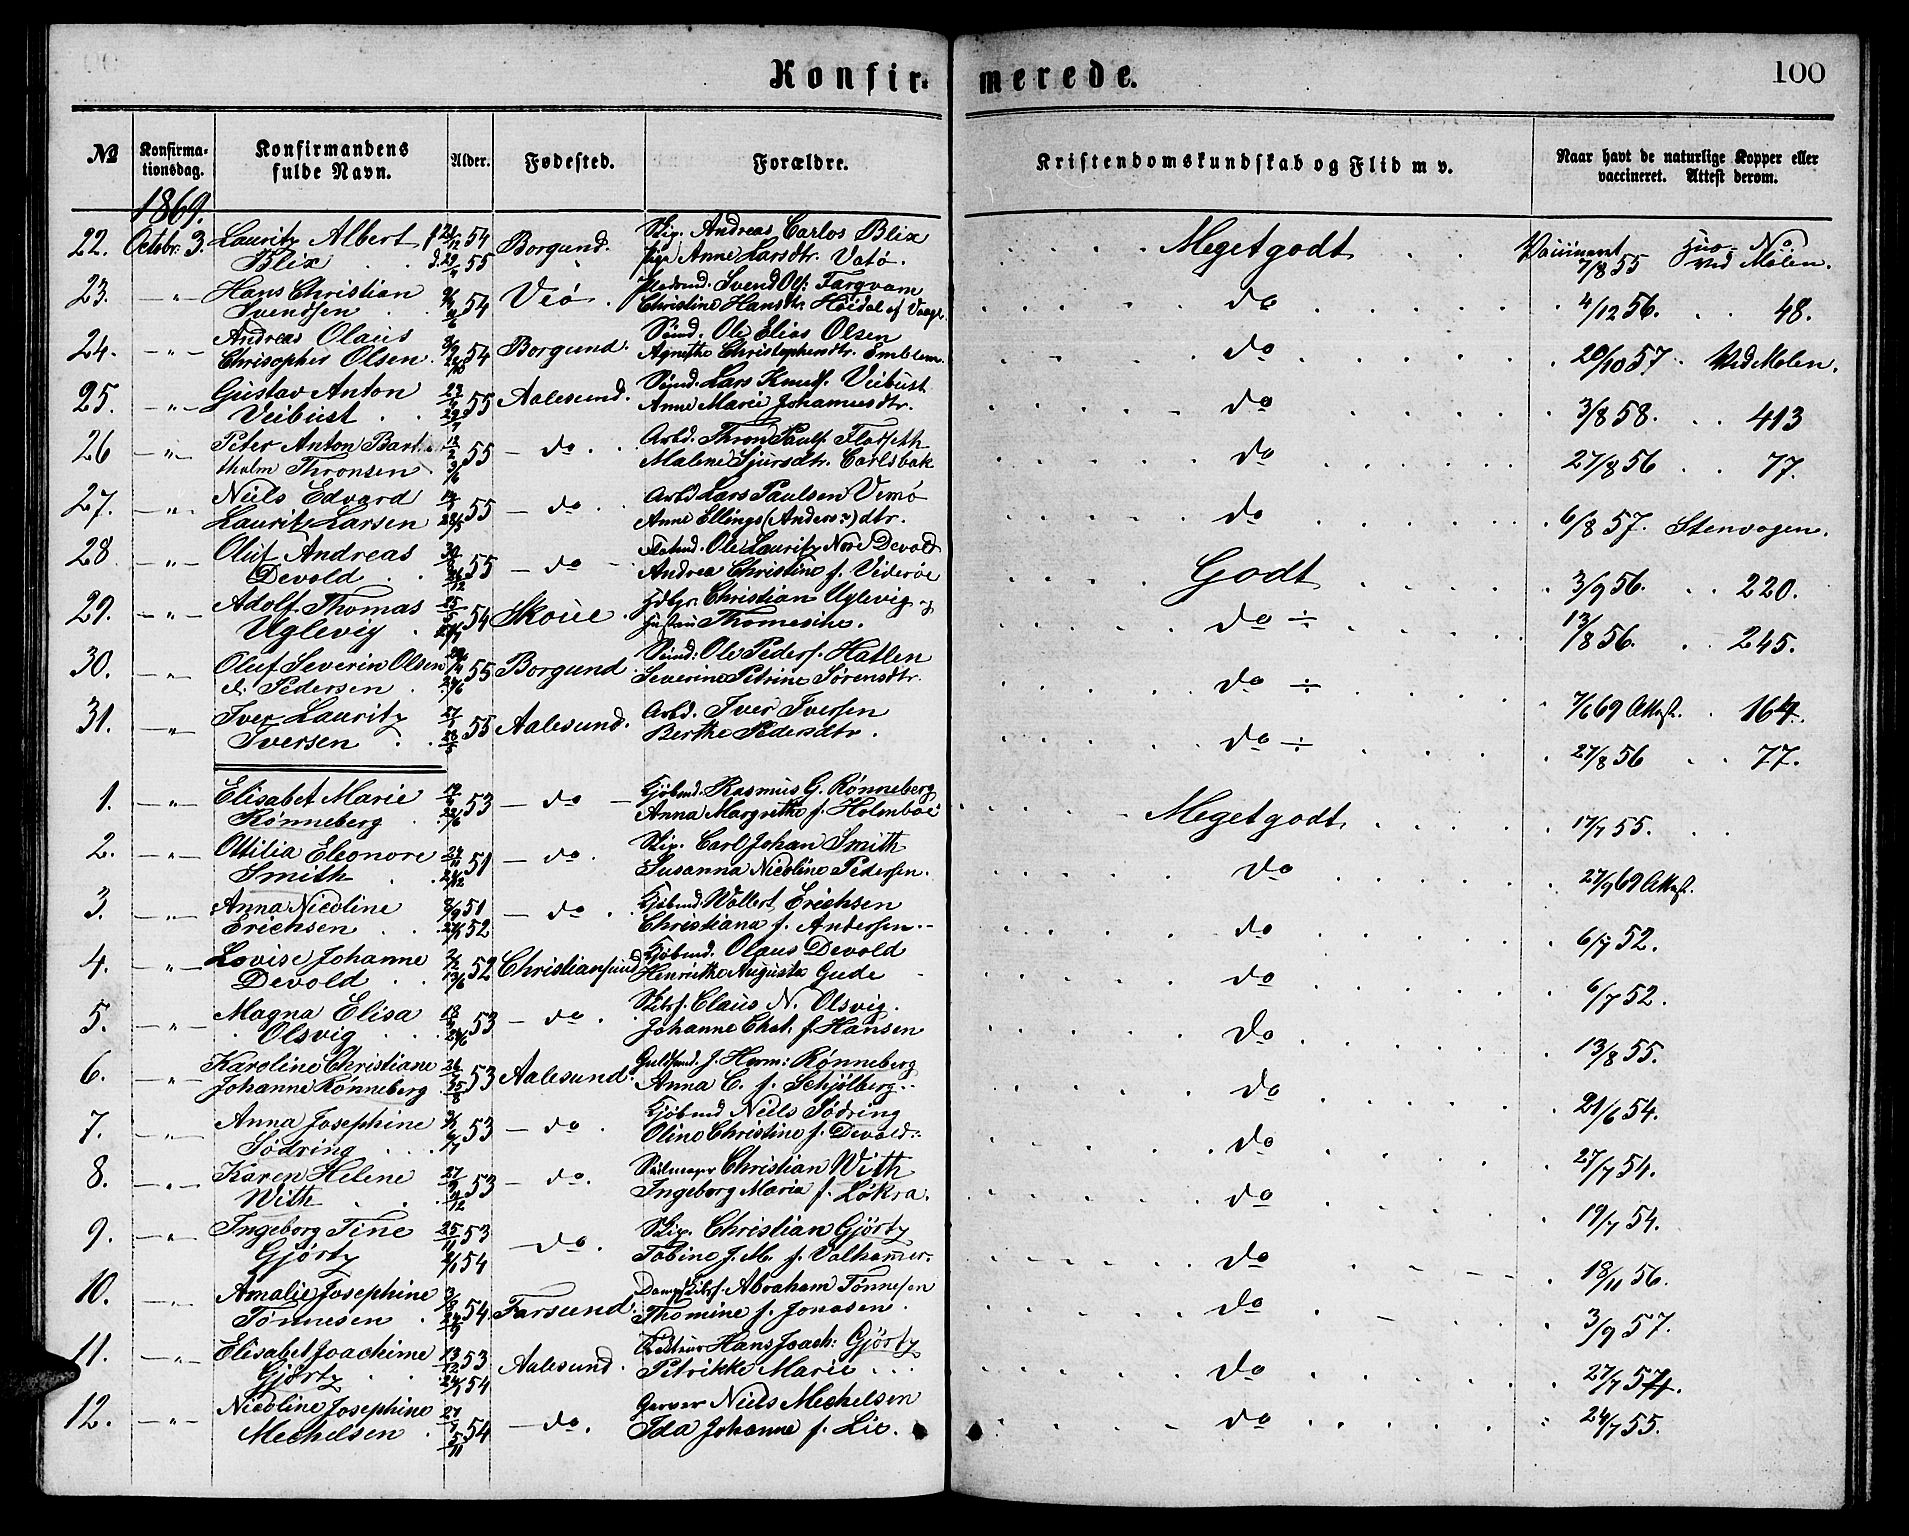 Konfirmerede.
100
№
Konfirmationsdag.
Konfirmandens fulde Navn.
Alder.
Fødested.
Forældre.
Kristendomskundskab og Flid m v.
Naar havt de naturlige Kopper eller vaccineret. Attest derom.
1869.
22. Octobr. 3. Lauritz Albert Blix 54 55 Borgund. Andreas Carlos Blix Anne Larsdtr. Vatø. Megetgodt 7/8 55 ved Molen.
23. — " — Hans Christian Svendsen 54 Veø. Svend Ols. Farqvam Christine Hansdtr. do 4/12 56. 48.
24. — " — Andreas Olaus Chrisopher Olsen 54 Borgund. Ole Elias Olsen Agnethe Christophersdtr. Emblem. do 20/10 57. Ved Molen.
25. — " — Gustav Anton Veibust 55 Aalesund. Lars Knuds. Veibust Anne Marie Johannesdtr. do 3/8 58. 413
26 — " — Peter Anton Bartholm Thronsen 55 — do. Arbd. Thron Pauls. Malene Sjursdtr. Carlsbak do 27/8 56 77.
27. — " — Niels Edvard Lauritz Larsen 55 — do. Arbd Lars Paulsen Vemø Anne Ellings (Anders?) dtr. do 6/8 57. Stenvogen.
28 — " — Oluf Andreas Devold 55 — do — Ole Lauritz Nore Devold Andrea Christine f. Viderøe Godt 3/9 56. 220.
29. — " — Adolf Thomas Uglevig 54 Skoue. Christian Uglevig og Hustru Thomesine. do ÷ 13/8 56. 245.
30. — " — Oluf Severin Olsen el. Pedersen 55 Borgund. Ole Peders. Hatlen Severine Petrine Sørensdtr. do ÷ 7/6 69 Attest. 164.
31. — " — Iver Lauritz Iversen 55 Aalesund. Arbd. Iver Iversen Berthe Pedersdtr. do ÷ 27/8 56 77.
1. — " — Elisabet Marie Rønneberg 53 — do — Kjøbmd. Rasmus G. Rønneberg Anna Margrethe f. Holmboe Megetgodt 17/7 55.
2. — " — Ottilia Eleonore Smith 51 — do. Carl Johan Smith Susanna Nicoline Pedersen. do 27/9 69 Attest.
3. — " — Anna Nicoline Erichsen 51 52 — do. Kjøbmd. Wollert Erichsen Christiana f. Andersen. do 6/7 52.
4. — " — Lovise Johanne Devold 52 Christiansund Kjøbmd. Olaus Devold Henrikke Augusta Gude do 6/7 52.
5. — " — Magna Elisa Olsvig 53 — do. Claus N. Olsvig. Johanne Chat. f. Hansen do 13/8 55.
6. — " — Karoline Christiane Johanne Rønneberg 53 Aalesund. Guldsmd. J. Herm: Rønneberg Anna C. f. Schjølberg. do 21/6 54.
7. — " — Anna Josephine Sødring 53 — do. Kjøbmd Niels Sødring Oline Christine f. Devold. do 27/7 54.
8. — " — Karen Helene With 53 — do. Christian With Ingeborg Maria f. Løkra. do 19/7 54.
9. — " — Ingeborg Tine Gjørtz 53 54 — do. Christian Gjørtz Tobine J. M. f. Valkamer. do 18/11 56.
10. — " — Amalie Josephine Tønnesen 54. Farsund. Abraham Tønnesen Thomine f. Jonasen. do 3/9 57.
11. — " — Elisabet Joachime Gjørtz 53 54 Aalesund. Hans Joach: Gjørtz Petrikke Marie do 27/7 54.
12. — " — Nicoline Josephine Mechelsen 54 — do. Garver Niels Mechelsen Ida Johanne f. Lie. do 24/7 55.